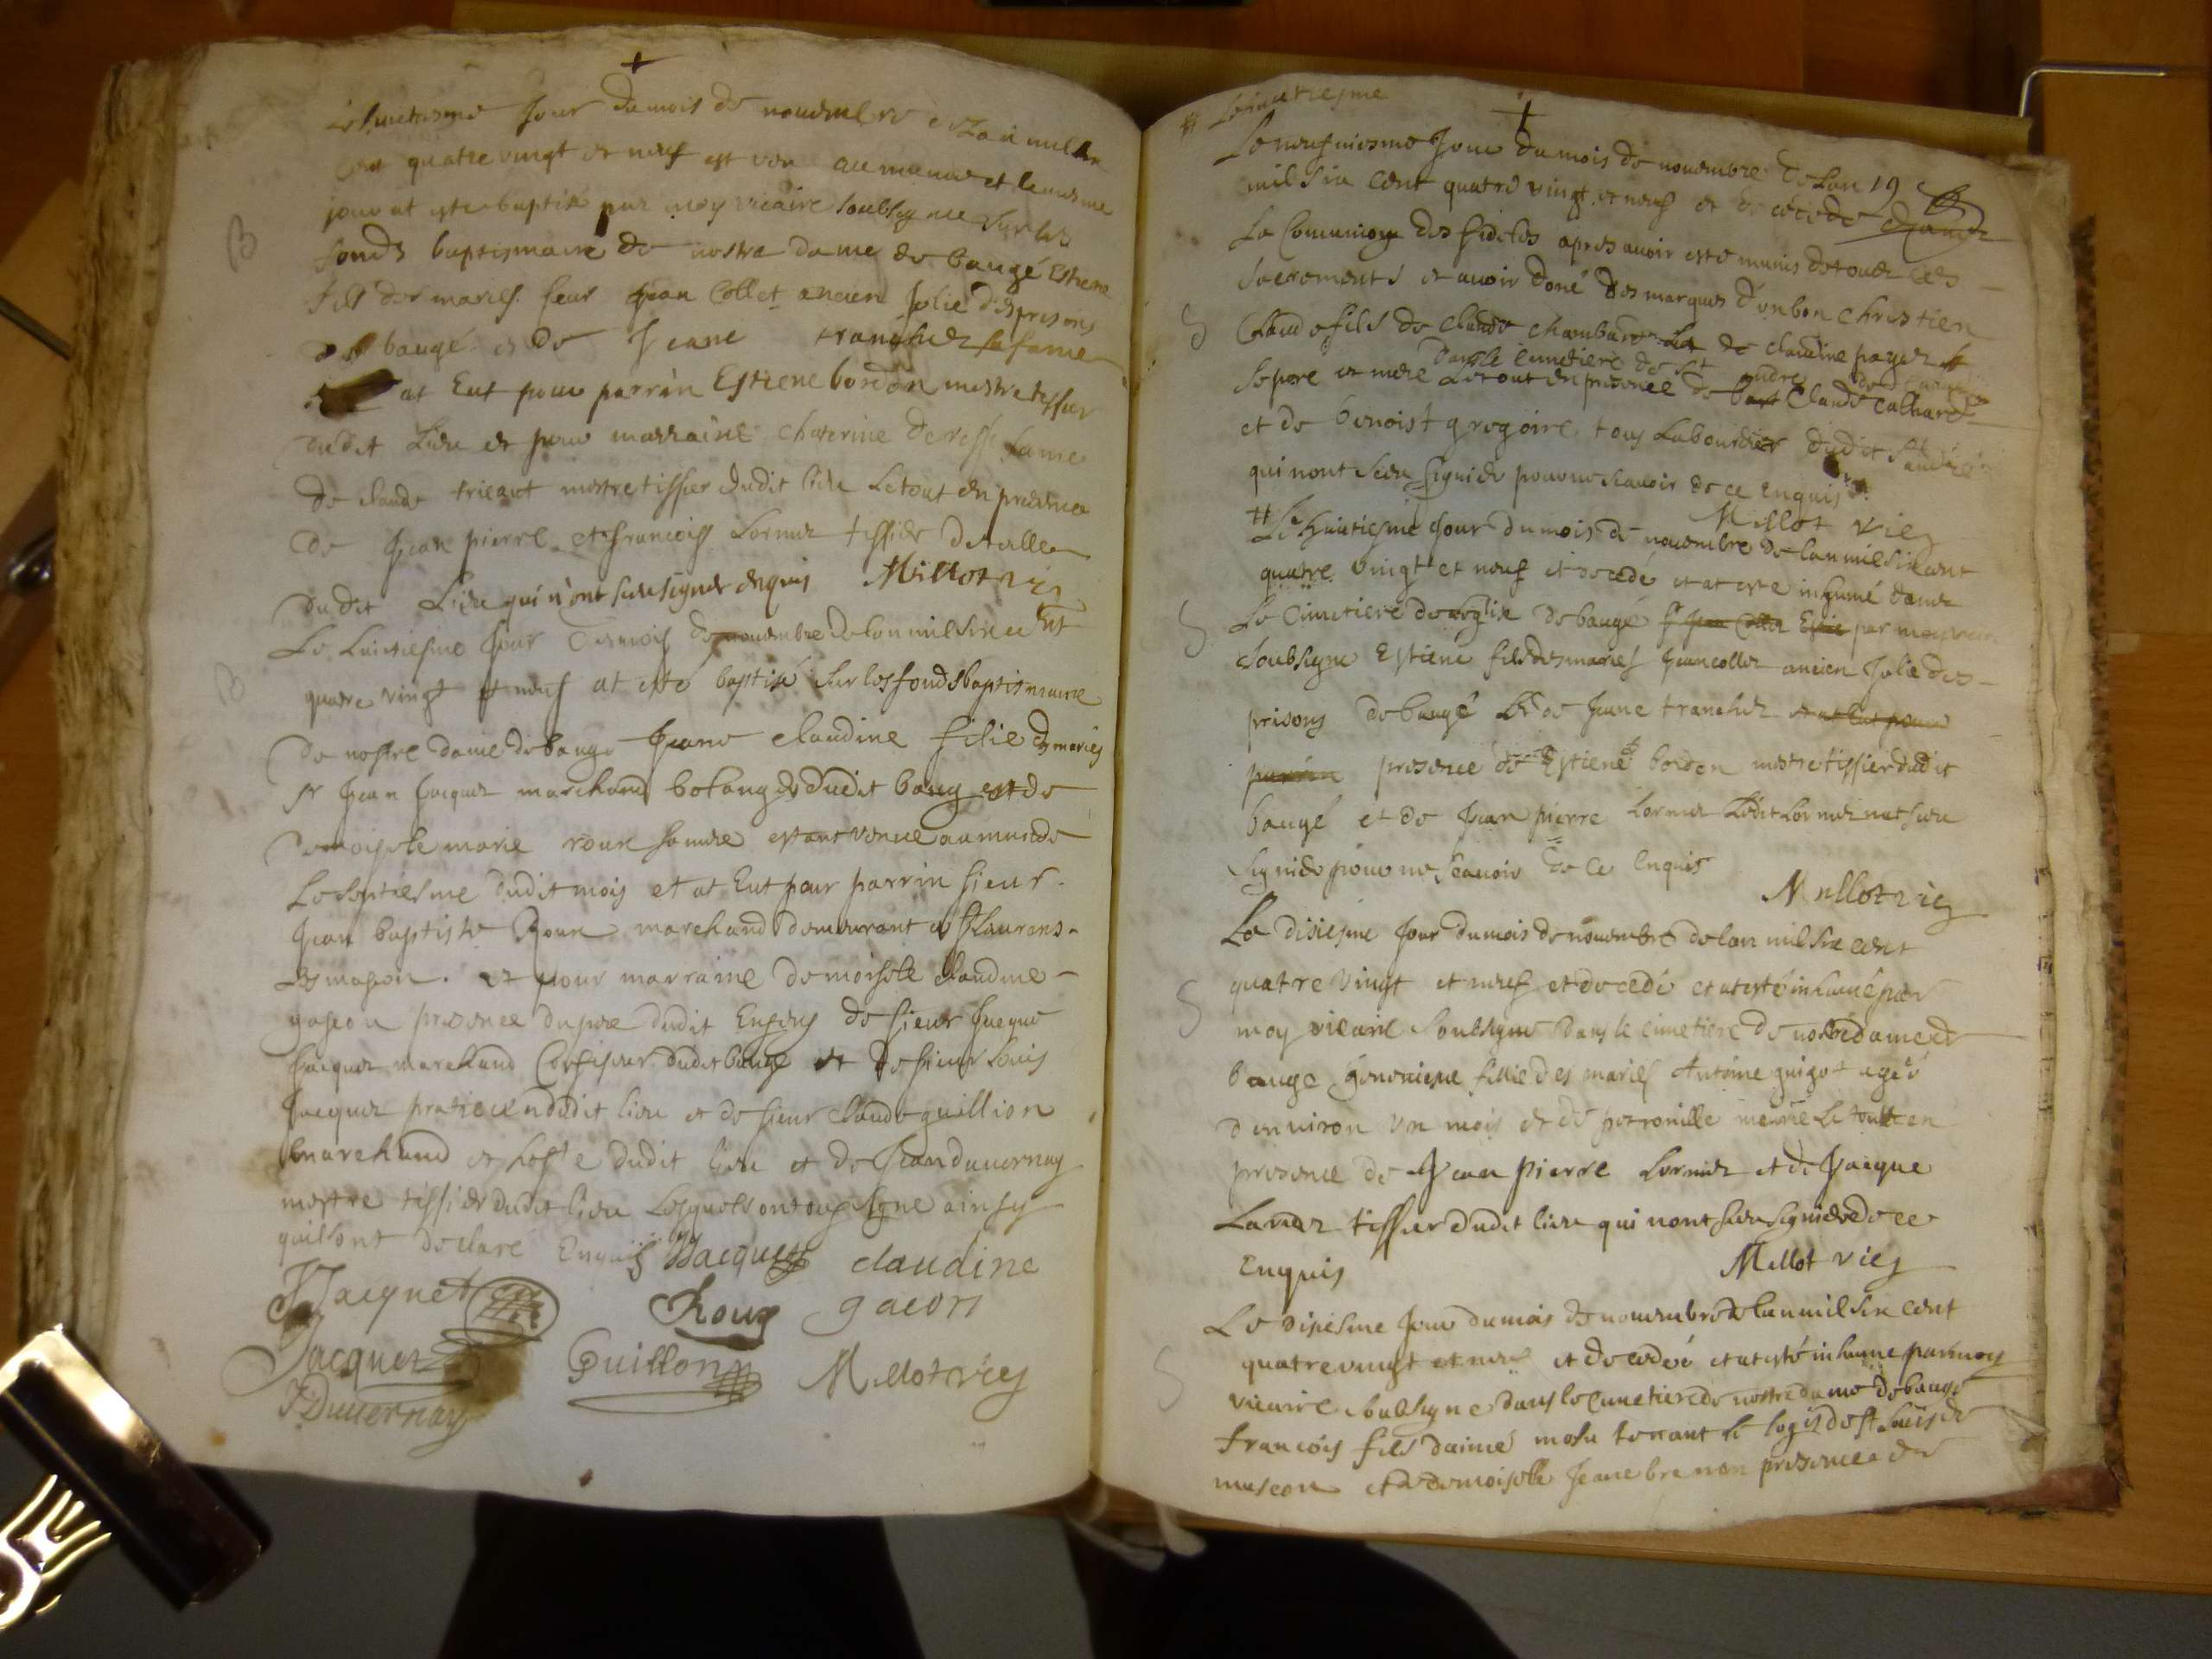 Le huictiesme Jour du mois de novembre de lan mil six
cent quatre vingt et neuf est venu au munde et le mesme
jour at esté baptisé par moy vicaire soubsigné sur les
B
fonds baptismaire de nostre dame de baugé Estiene
fils des mariés sieur Jean Collet ancien Jolie des prisons
de baugé et de Jeane tranchez sa fame
at Eut pour parrin Estiene bordon mestre tissier
dudit Lieu et pour marraine Chaterine fame
de claude tricaut mestre tissier dudit lieu Le tout en presence
de Jean pierre et francois Lornuz tissier de toille
dudit Lieu qui n'ont sceu signer enquis Millot vic
Le huictiesme Jour du mois de novembre de lan mil six cent
B
quatre vingt et neuf at esté baptisé sur les fonds baptismaire
de nostre dame de bauge Jeane claudine fillie des mariés
sr Jean Jacquet marchand bolanger dudit baugé et de
demoiselle marie roux sa mere estant venue au munde
Le septiesme dudit mois et at Eut pour parrin sieur
Jean baptiste Roux marchand demeurant a St Laurens
les mascon. et pour marraine demoiselle claudine
gacon presence du pere dudit Enfans de sieur Jacque
Jacquet marchand dudit baugé et de sieur Louis
Jacquet praticien dudit lieu et de sieur claude guillion
marchand et hoste dudit lieu et de Jean duvernay
mestre tissier dudit lieu Lesquels ont tous signe ainsy
quil ont declare Enquis Jacquet claudine
J Jacquet Roux gacon
Jacquet Guillon Millot vic
J Duvernay
# Le huictiesme
Le neufviesme Jour du mois de novembre de Lan 19
mil six cent quatre vingt et neuf et decedé dans
La Comunion des fideles apres avoir esté munis de tous les
sacrements et avoir doné des marques d'un bon christien
S
Claude fils de claude chambard et de claudine payer
dans le cimetiere de St andre
se pere et mere Le tout en presence de Claude Calliard
et de benoist gregoire tous Laboureur dudit St andre
qui nont sceu signer pour ne scavoir de ce enquis
Millot vic
# Le huictiesme Jour du mois de novembre de lan mil six cent
quatre vingt et neuf et decedé et at esté inhumé dans
S
Le Cimetiere de leglise de baugé sr Jean Collet par moy vicaire
soubsigné Estiene fils des mariés Jean collet ancien Jolie des
prisons de baugé et de Jeane tranchez et at Eut pour
parrin presence de Estiene bordon mestre tissier dudit
baugé et de Jean pierre Lornuz Ledit Lornuz nat sceu
signer pour ne scavoir de ce enquis
Millot vic
Le disiesme Jour du mois de novembre de lan mil six cent
S
quatre vingt et neuf et decedé et at esté inhumé par
moy vicaire soubsigné dans le cimetiere de nostre dame de
bauge fillie des mariés Antoine guigot agée
denviron un mois et de petronille Le tout en
presence de Jean pierre Lornuz et de Jacque
Landz tissier dudit lieu qui nont sceu signer de ce
Enquis Millot vic
Le disiesme Jour du mois de novembre de lan mil six cent
S
quatre vingt et neuf et decedé et at esté inhumé par moy
vicaire soubsigné dans le cimetiere de nostre dame de baugé
francois fils daimé tenant le logis de St Louis de
mascon et de demoiselle Jeane brenon presence de